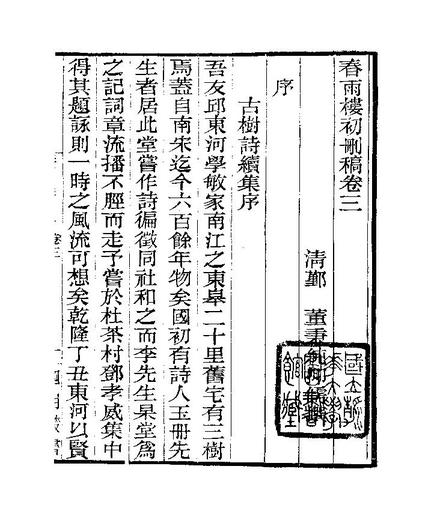 春雨樓初刪稿卷三
清鄞 董秉純
序
古樹詩續集序
吾友邱東河學敏家南江之東皋二十里舊宅有三樹
焉蓋自南宋迄今六百餘年物矣國初有詩人玉冊先
生者居此堂嘗作詩徧徵同社和之而李先生杲堂爲
之記詞章流播不脛而走予嘗於杜茶村鄧孝威集中
得其題詠則一時之風流可想矣乾隆丁丑東河以賢
卷三